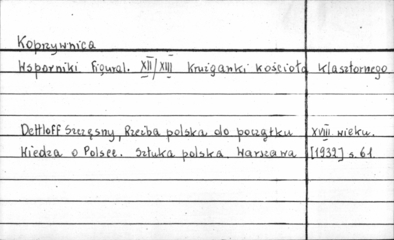 Koprzywnica
Wsporniki figural. XII/XIII krużganki kościoła klasztornego
Dettloff Szczęsny, Rzeźba polska do początku XVIII wieku.
Wiedza o Polsce. Sztuka polska. Warszawa [1932] s. 61